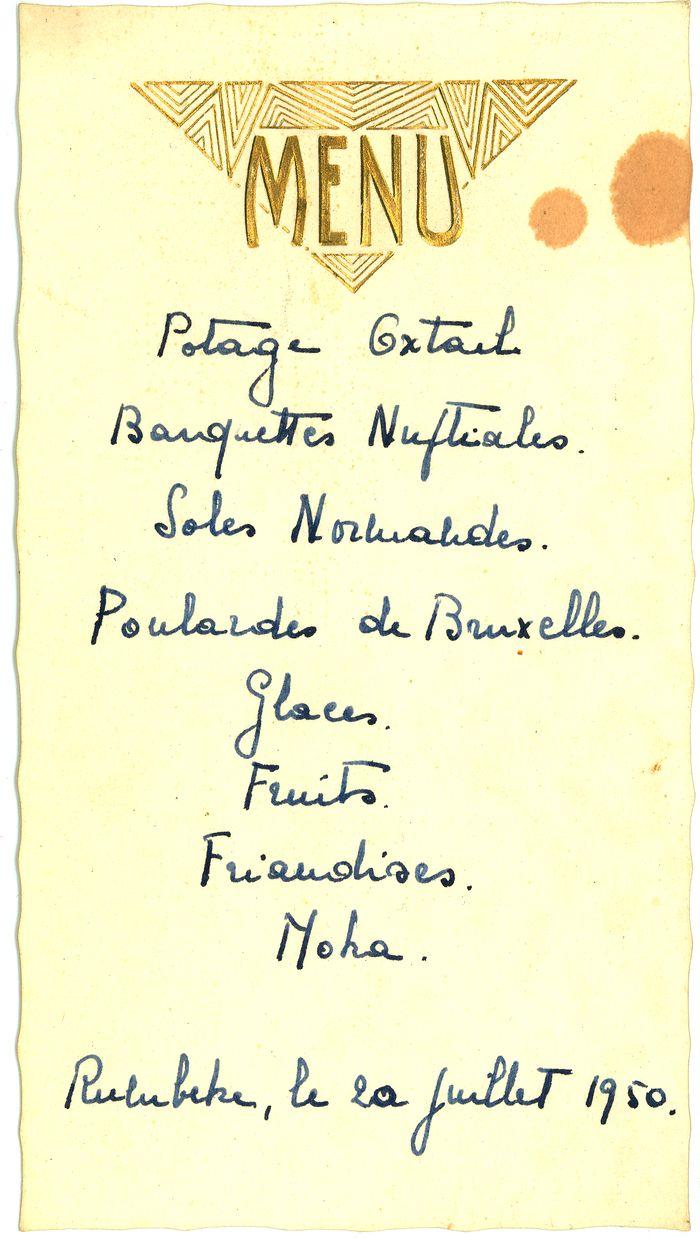 MENU
Potage Oxtail
Banquettes Nuptiales.
Soles Normandes.
Poulardes de Bruxelles.
Glaces.
Fruits.
Friandises.
Moka.
Rumbeke, le 20 Juillet 1950.